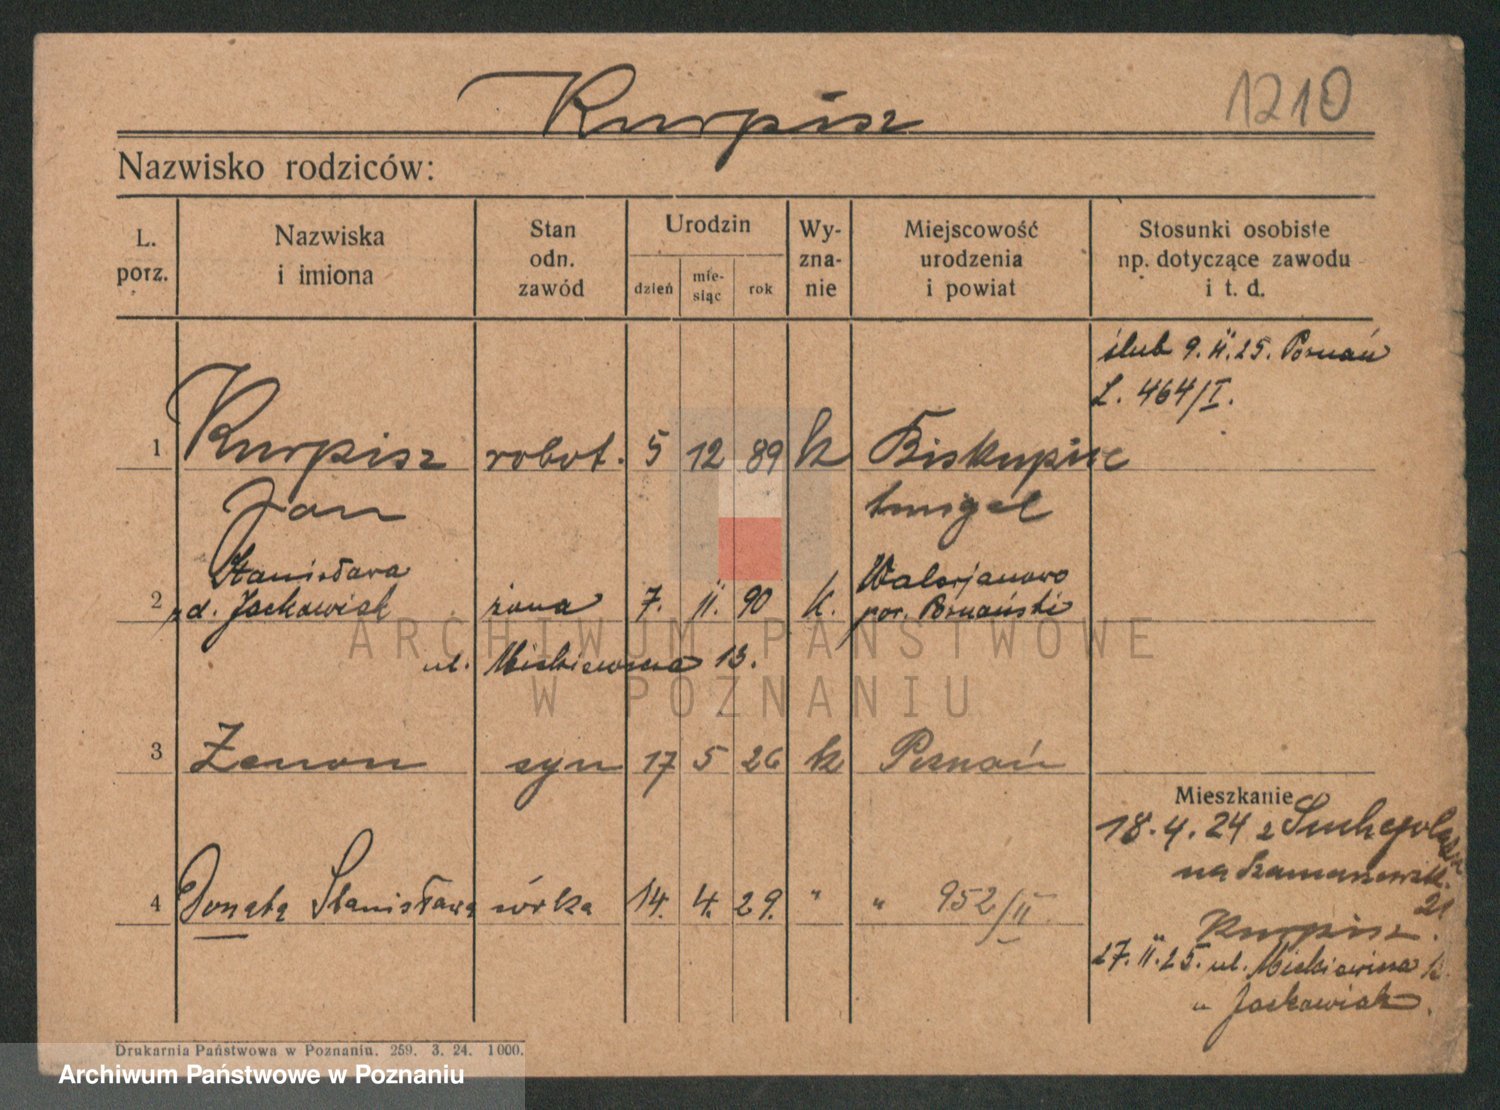 Kurpisz
1210
Nazwisko rodziców:
L. porz.
Nazwiska i imiona
Stan odn. zawód
Urodzin
dzień
mie-siąc
rok
Wy-zna-nie
Miejscowość urodzenia i powiat
Stosunki osobiste np. dotyczące zawodu i t. d.
ślub 9. II. 25. Poznań
L. 464/I.
1 Kurpisz robot. 5 12 89 k Biskupice
Jan Śmigel
Stanisława Walerjanowo
2 z d. Jackowiak żona 7. II. 90 k. pow. Poznański
ul. Mickiewicza 13.
ARCHIWUM PAŃSTWOWE
W POZNANIU
3 Zenon syn 17 5 26 k Poznań
Mieszkanie
18. 4. 24 z
na
4 Donata Stanisława córka 14. 4. 29. " " 952/II
21
Kurpisz.
27. II. 25. ul. Mickiewicza
u Jackowiak.
Drukarnia Państwowa w Poznaniu. 259. 3. 24. 1000.
Archiwum Państwowe w Poznaniu